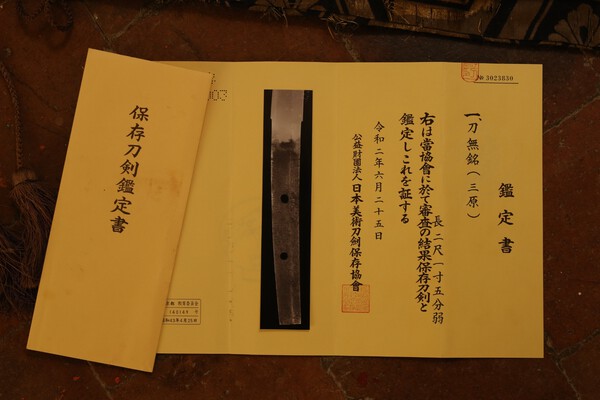 № 3023830
鑑定書
一、刀 無銘(三原)
長 二尺一寸五分弱
右は當協會に於て審査の結果保存刀剣と
鑑定しこれを証する
令和二年六月二十五日
公益財團法人 日本美術刀剣保存協會
保存刀剣鑑定書